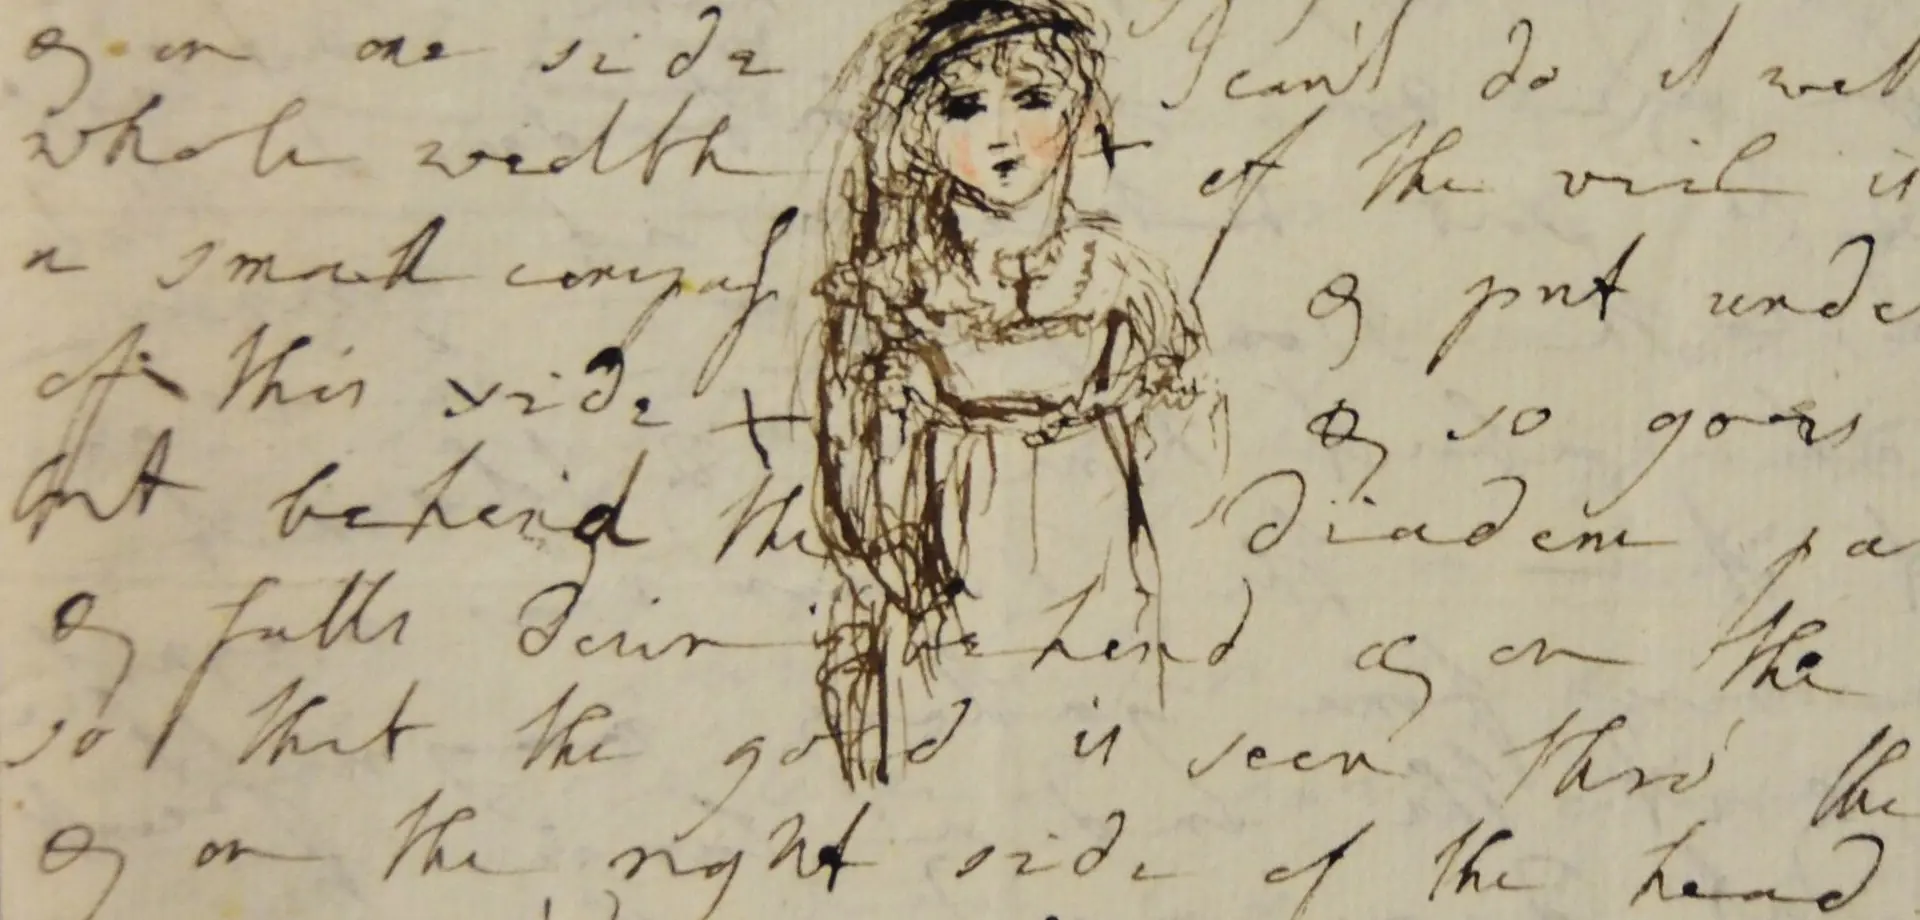 & on one side I can't do it well
whole width + of the veil is
a small compass & put unde
of this side + & so goes
but behind the diadem pa
& falls down behind & on the
so that the gold is seen thro' the
& on the right side of the head